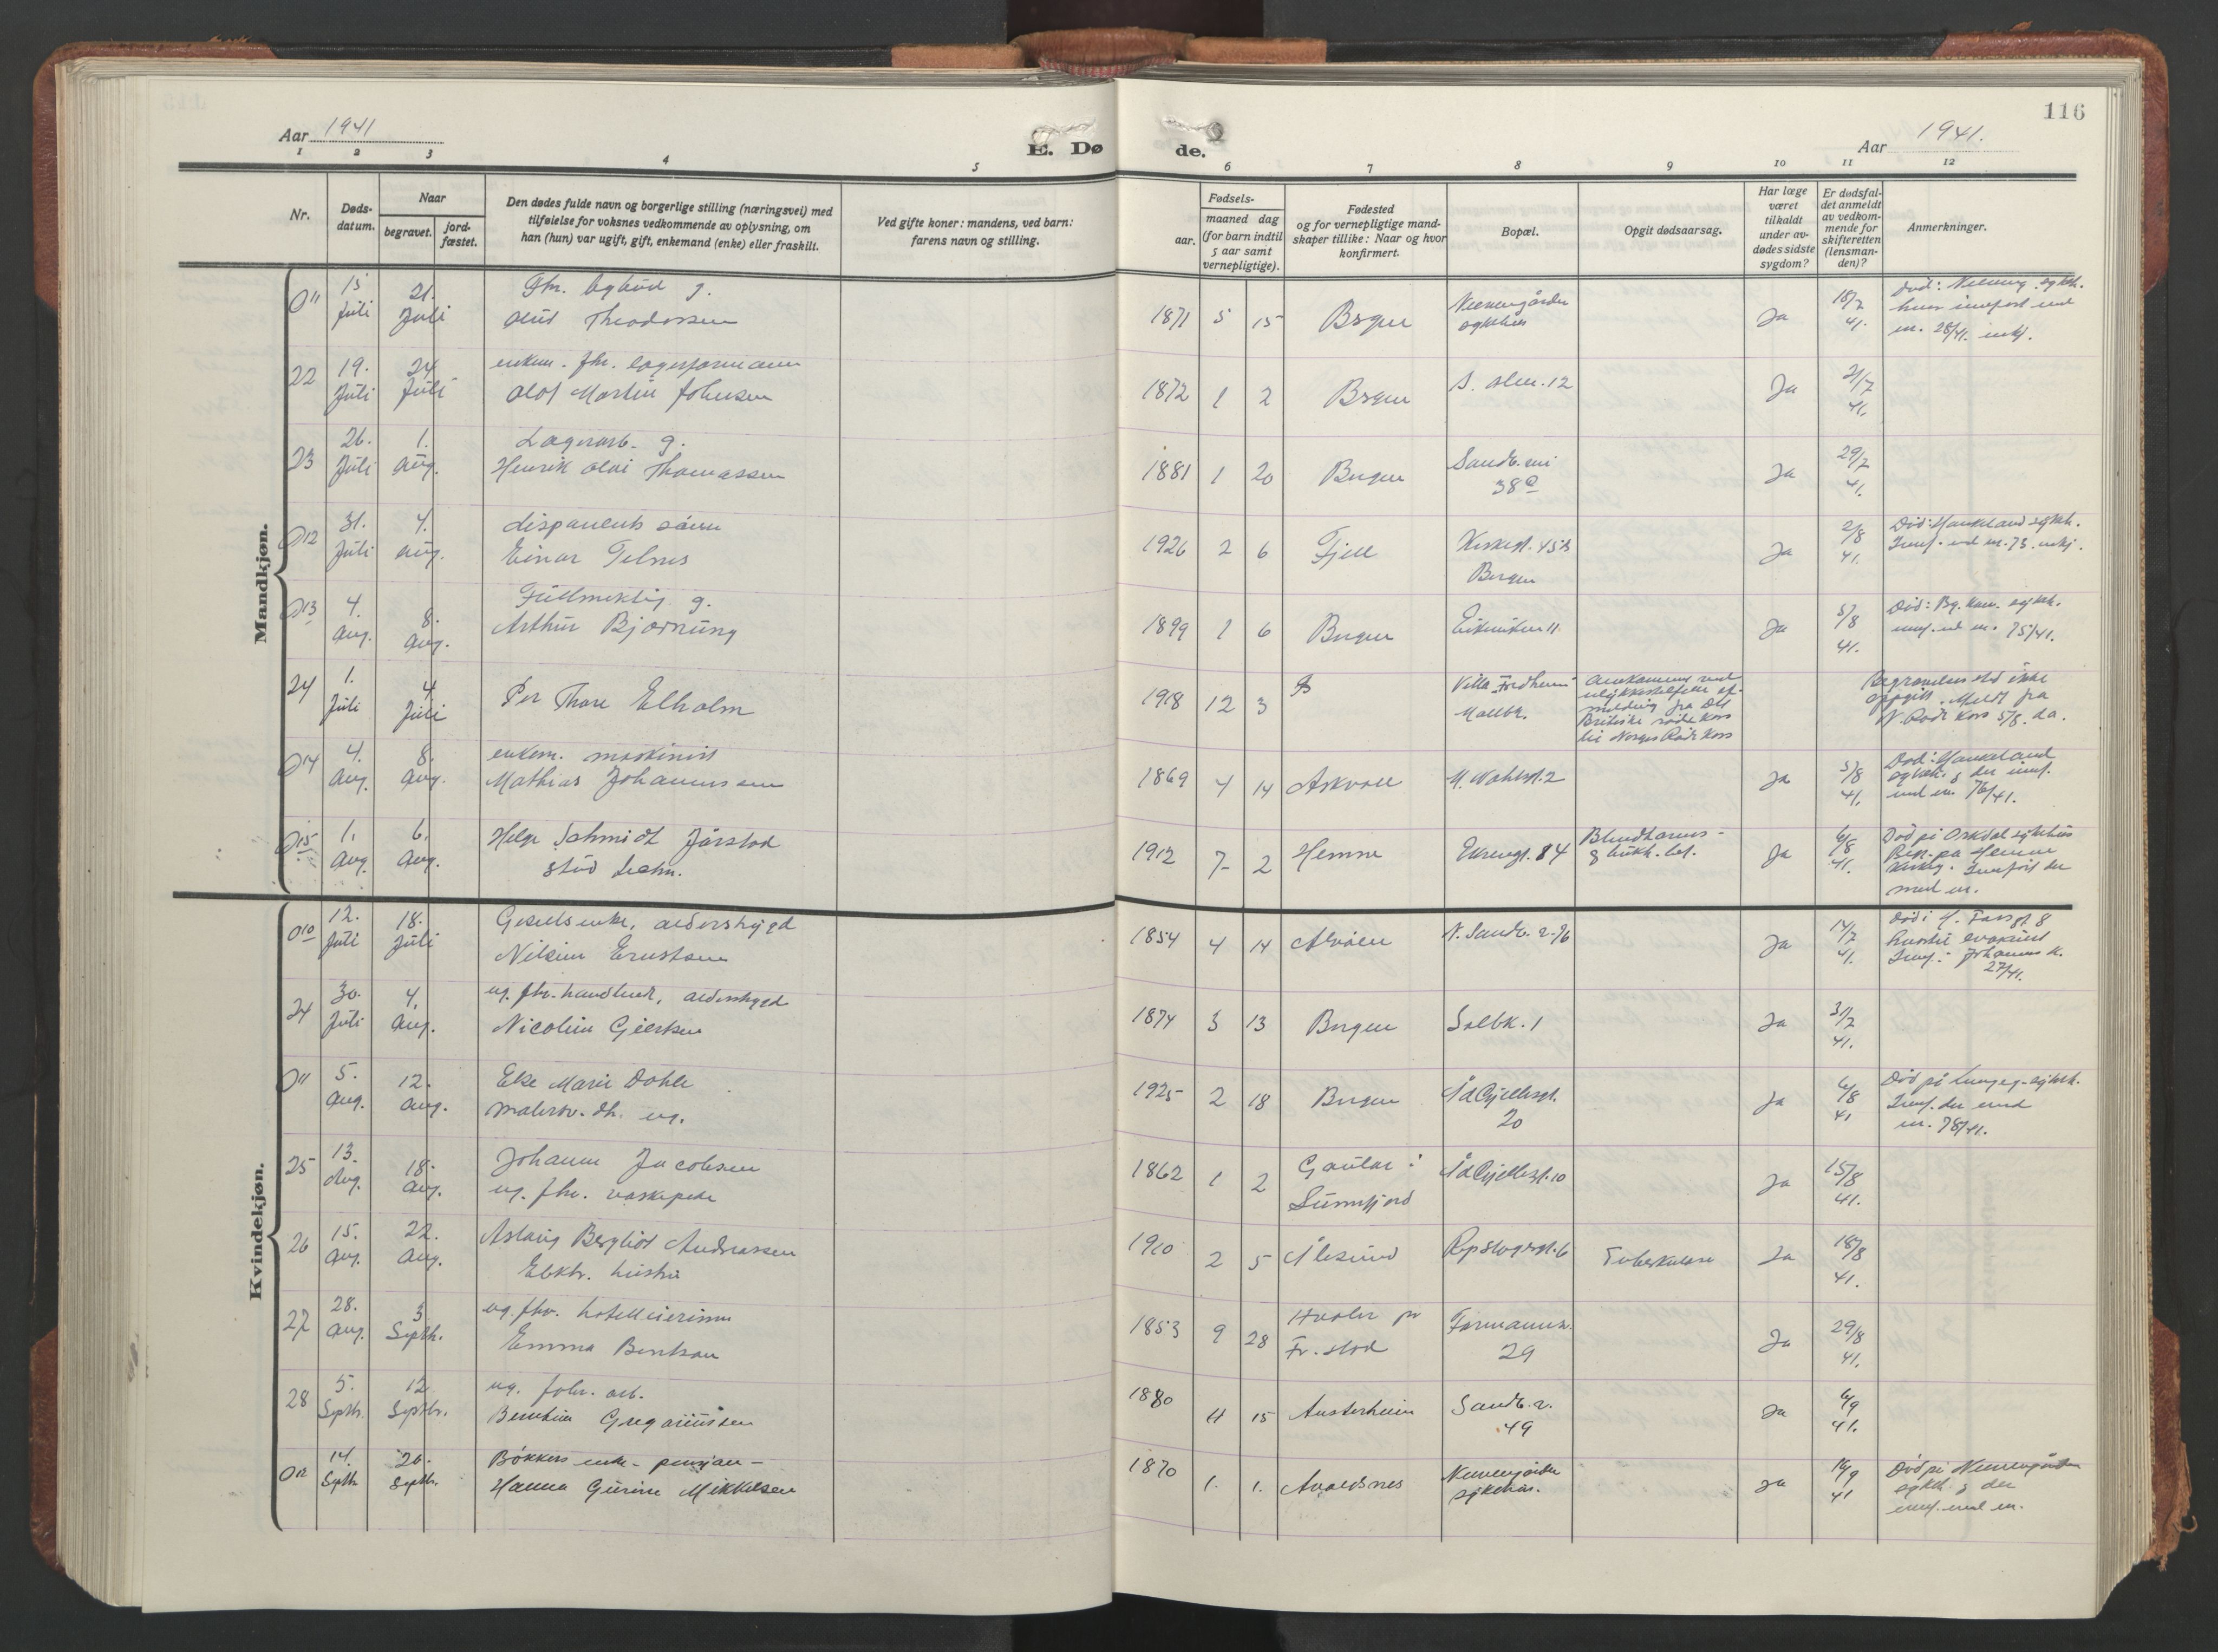 116
Aar 1941
E. Dø de.
Aar 1941.
1 2 3 4 5 6 7 8 9 10 11 12
Nr.
Døds-
datum.
Naar
begravet.
jord-
fæstet.
Den dødes fulde navn og borgerlige stilling (næringsvei) med
tilføielse for voksnes vedkommende av oplysning, om
han (hun) var ugift, gift, enkemand (enke) eller fraskilt.
Ved gifte koner: mandens, ved barn:
farens navn og stilling.
Fødsels-
aar.
maaned dag
(for barn indtil
5 aar samt
vernepligtige).
Fødested
og for vernepligtige mand-
skaper tillike: Naar og hvor
konfirmert.
Bopæl.
Opgit dødsaarsag.
Har læge
været
tilkaldt
under av-
dødes sidste
sygdom?
Er dødsfal-
det anmeldt
av vedkom-
mende for
skifteretten
(lensman-
den)?
Anmerkninger.
Mandkjøn.
O 11
15 Juli
21. Juli
Fhv. bybud g.
Theodorsen
1871 5 15
Bergen
Neevengården
sykehus
Ja
18/7 41.
Død: Neeveng. sykeh.
innført med
nr. 28/41.
22
19. Juli
24 Juli
enkem. fhv. lagerformann
Olof Martin Johnsen
1872 1 2
Bergen
S. alm. 12
Ja
21/7 41.
23
26. Juli
1. Aug.
Lagerarb. g.
Henrik Olai Thomassen
1881 1 20
Bergen
Sandv. vei
38a
Ja
29/7 41.
O 12
31. Juli
4. Aug.
disponents sønn
Einar Telnes
1926 2 6
Fjell
Kirkegt. 45b
Bergen
Ja
2/8 41.
Død: Haukeland sykeh.
Innf. med nr. 73
O 13
4. Aug.
8. Aug.
Fullmektig g.
Arthur Bjørnung
1899 1 6
Bergen
11.
Ja
5/8 41.
Død: Bg. Kom. sykeh.
innf. med nr. 75/41.
24
1. Juli
4 Juli
Per Thore Elholm
1918 12 3
B
Villa Fredheim
Møllbk.
Omkommet ved
ulykkestilfelle ef.
melding fra Det
Britiske røde Kors
til Norges Røde Kors
Begravelsessted ikke
oppgitt. Meldt fra
N. Røde Kors 5/8. d.a.
O 14
4. Aug.
8. Aug.
enkem. maskinist
Mathias Johannessen
1869 4 14
Askvoll
H. Wahlsgt. 2
Ja
5/8 41.
Død: Haukeland
sykeh. & der innf.
med nr. 76/41.
O 15
1. Aug.
6. Aug.
Helge Schmidt Jårstad
stud techn.
1912 7 2
Hemne
Ekrengt. 84
Blindtarms-
& bukh. bet.
Ja
6/8 41.
Død på Orkdal sykehus
Beg. på Hemne
Kirkeg. Innført der
med nr.
Kvindekjøn.
O 10
12. Juli
18. Juli
enke, alderstrygd
Nilsine Ernstsen
1854 4 14
Alvøen
N. Sandv. v. 76
Ja
14/7 41.
Død i H. Fossgt. 8
evakuert
Innf. i Johannes k.
27/41.
24
30. Juli
4. Aug.
ug. fhv. handlende, alderstrygd
Nicoline Geertsen
1874 3 13
Bergen
Solbk. 1
Ja
31/7 41.
O 11
5. Aug.
12. Aug.
Else Marie Dahle
malersv. dt. ug.
1925 2 18
Bergen
Å d Gjellesgt.
20
Ja
6/8 41
Død på Lungeg. sykeh.
Innf. der med
nr. 78/41.
25
13. Aug.
18. Aug.
Johanne Jacobsen
ug. fhv. vaskepike
1862 1 2
Gaular i
Sunnfjord
Å d Gjellesgt. 10
Ja
15/8 41.
26
15. Aug.
22. Aug.
Aslaug Bergliot Andreassen
Elektr. hustru
1910 2 5
Ålesund
Repslagergt. 6
Tuberkulose
Ja
18/8 41.
27
28. Aug.
3 Septb.
ug. fhv. hotelleierinne
Emma Bentzon
1853 9 28
Hvaler pr
Fr. stad
Formannsv.
29
Ja
29/8 41.
28
5. Septb.
12. Septbr.
ug. fohv. arb.
Bentine Gregoriussen
1880 4 15
Austerheim
Sandv. v.
49
Ja
6/9 41.
O 12
14. Septb
26. Septb.
Bøkkers enke - pensjon -
Hanna Gurine Mikkelsen
1870 1. 1.
Avaldsnes
Neevengården
sykehus.
Ja
16/9 41
Død på Neevengården
sykeh. & der
innf. med nr.